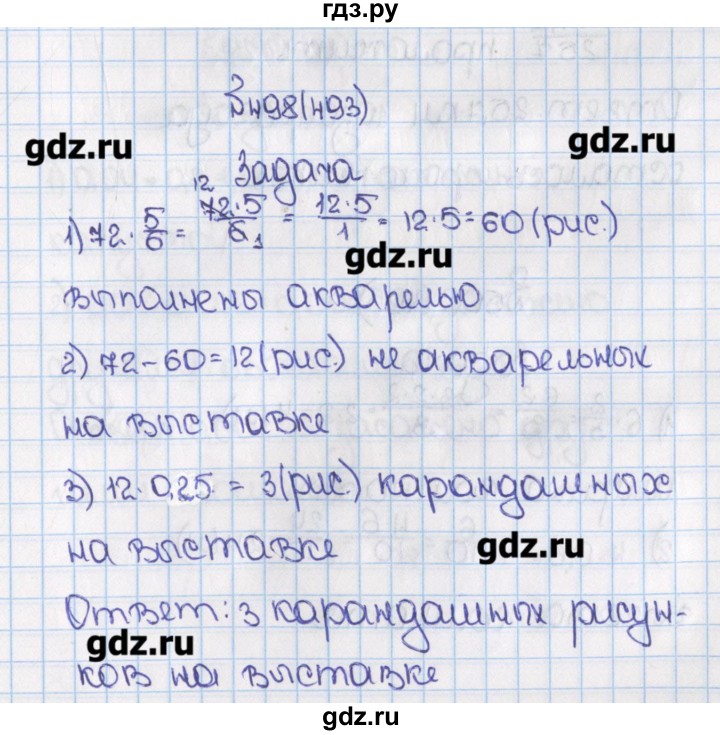 гдз.ру
№498(493)
gdz.ru
gdz.ru
Задача
1) 72 · 5/6 = 72·5/6 = 12·5/1 = 12·5 = 60 (рис.)
12
1
gdz.ru
выполнены акварелью
2) 72 – 60 = 12 (рис.) не акварельных
на выставке
3) 12 · 0,25 = 3 (рис.) карандашных
на выставке
gdz.ru
Ответ: 3 карандашных рисун-
gdz.ru
ков на выставке
gdz.ru